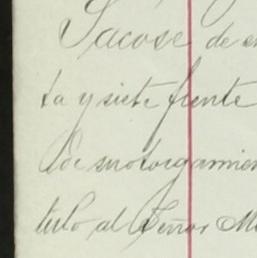 Sacose de en
ta y siete frente
de su otorgamien
tulo al Señor M